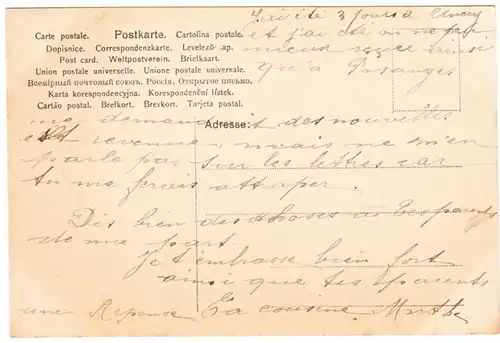 J'ai été 3 jours à
Carte postale. Postkarte. Cartolina postale.
et j'ai été on ne peut
Dopisnice. Correspondenzkarte. Levelező-ap.
mieux reçue ainsi
Post card. Weltpostverein. Briefkaart.
qu'à
Union postale universelle. Unione postale universale.
Всемірный почтовый союзъ. Россія. Открытое письмо.
Karta korespondencyjna. Korespondenční lístek.
Cartão postal. Brefkort. Brevkort. Tarjeta postal.
me demandait des nouvelles
Adresse:
est revenue, mais ne m'en
parle pas sur les lettres car
tu me ferais attraper.
Dis bien des choses à tes parents
de ma part.
Je t'embrasse bien fort
ainsi que tes parents
une Réponse Ta cousine Marthe